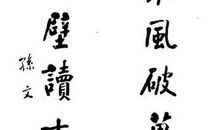 風破萬
壁讀
孫文